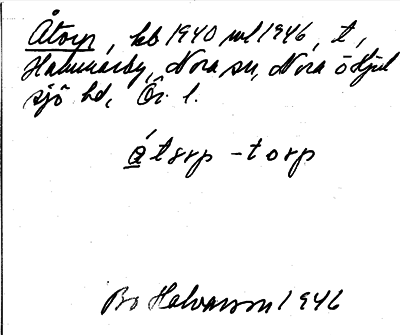 Åtorp, hb 1940 vl 1946, t,
Hammarby, Nora sn, Nora o Hjul
sjö hd, Ör. l.
åtorp -torp
Bo Halvarson 1946